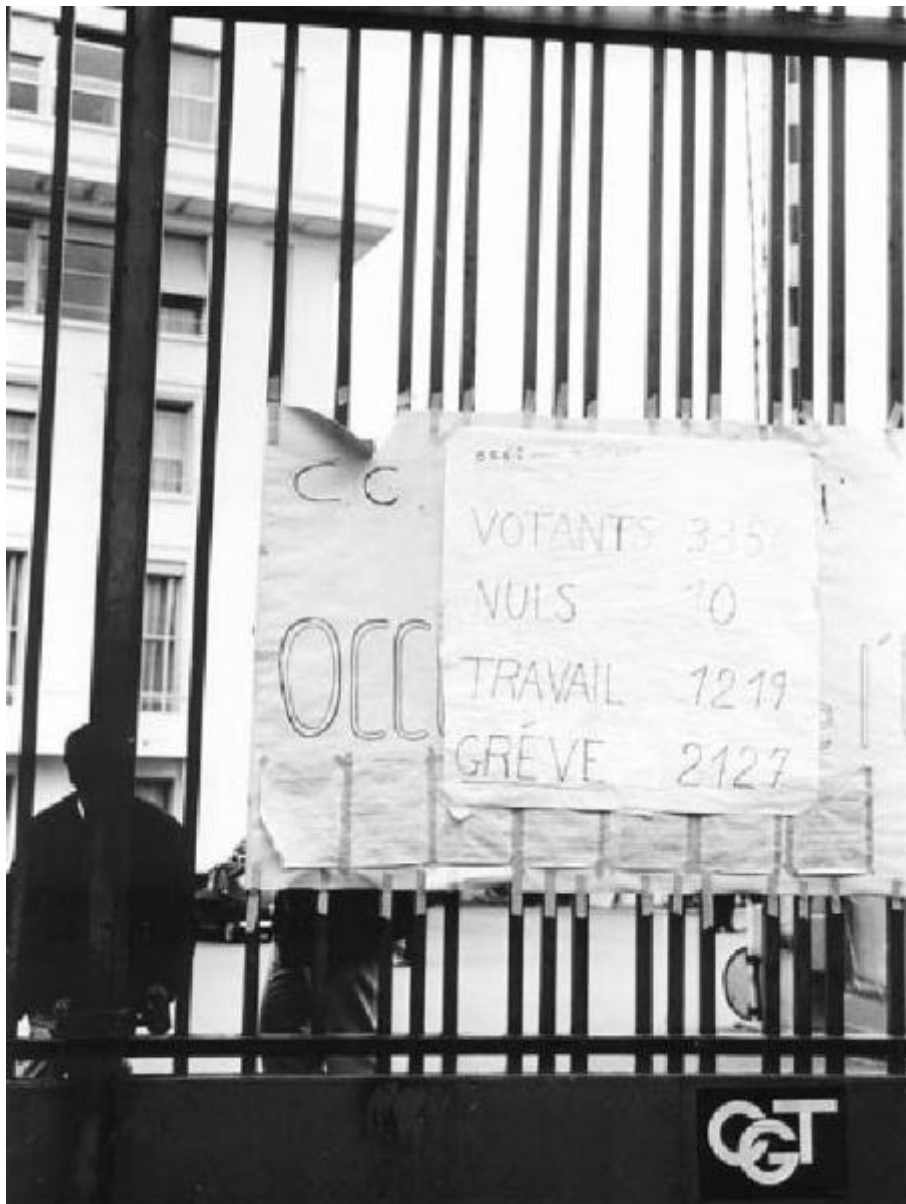 C C
OCC
VOTANTS 3356
NULS 10
TRAVAIL 1219
GRÉVE 2127
l'
CGT